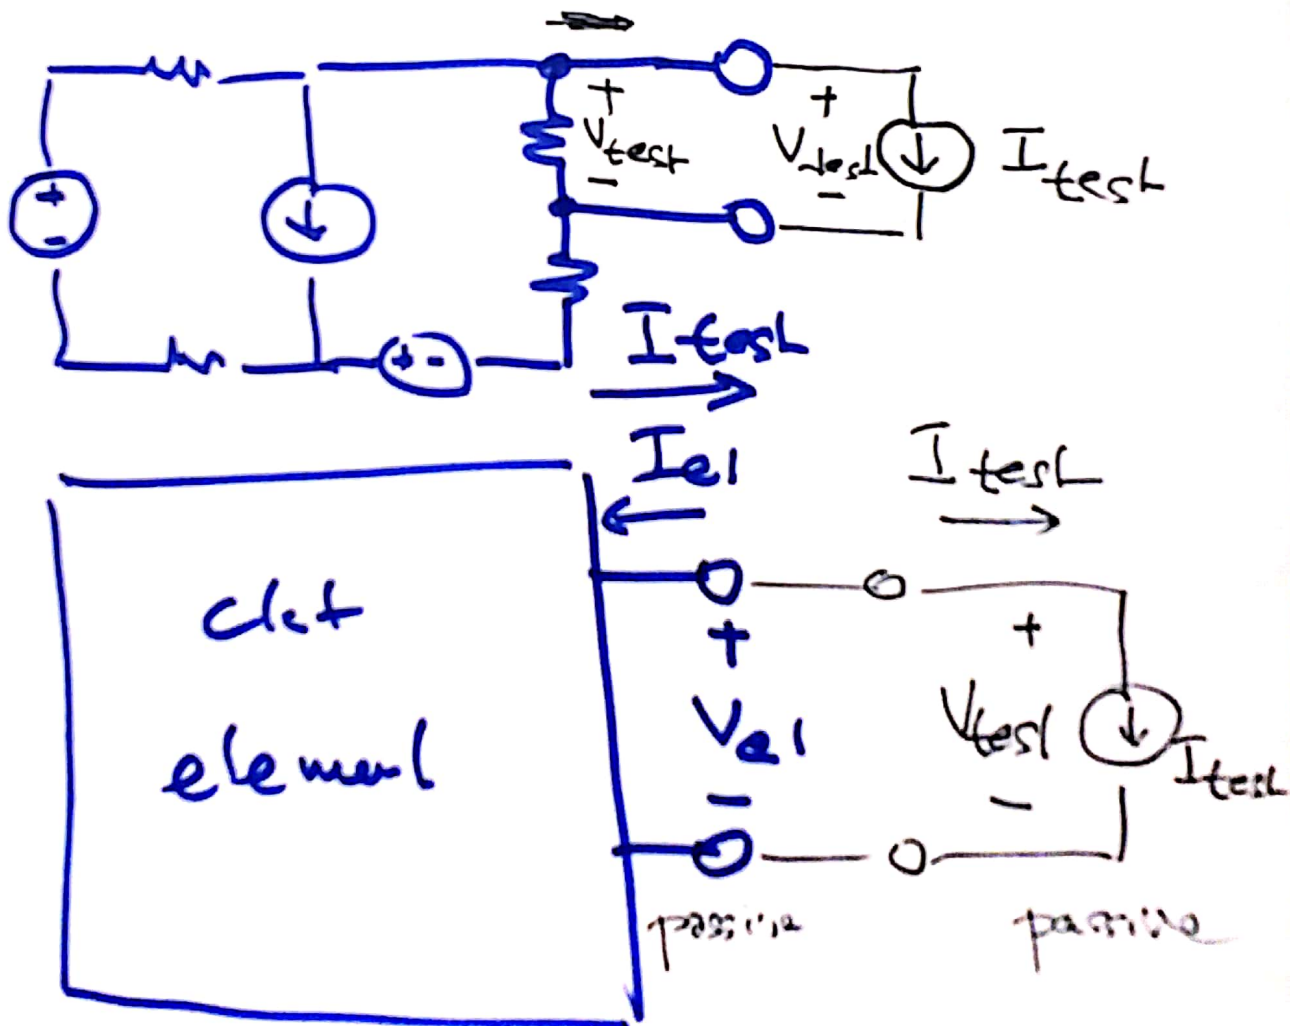 +
+
V test
V test
I test
-
-
+
-
+ -
I test
I el
I test
ckt
element
+
+
V el
V test
I test
-
-
passive
passive